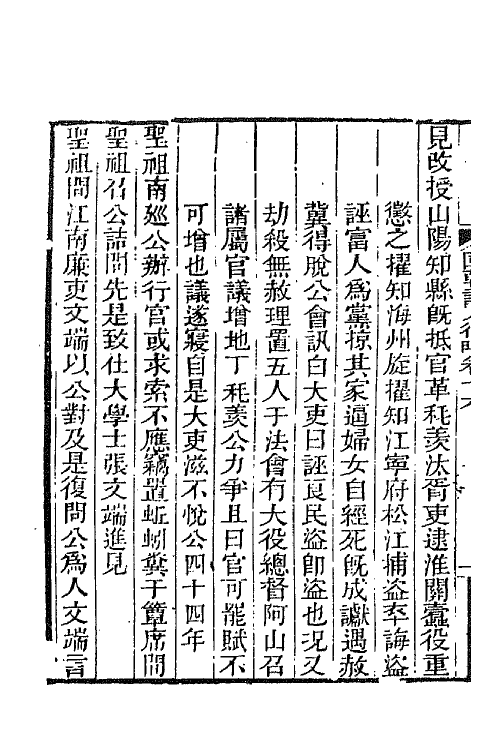 見改授山陽知縣旣抵官革秏羨汰胥吏逮淮關蠹役重
懲之擢知海州旋擢知江寧府松江捕盜率誨盜
誣富人爲黨掠其家逼婦女自經死旣成讞遇赦
冀得脫公會訊白大吏曰誣良民盜卽盜也况又
劫殺無赦理置五人于法會有大役總督阿山召
諸屬官議增地丁秏羨公力爭且曰官可罷賦不
可增也議遂寢自是大吏滋不悅公四十四年
聖祖南廵公辦行官或求索不應竊置蚯蚓糞于簟席間
聖祖召公詰問先是致仕大學士張文端進見
聖祖問江南廉吏文端以公對及是復問公爲人文端言